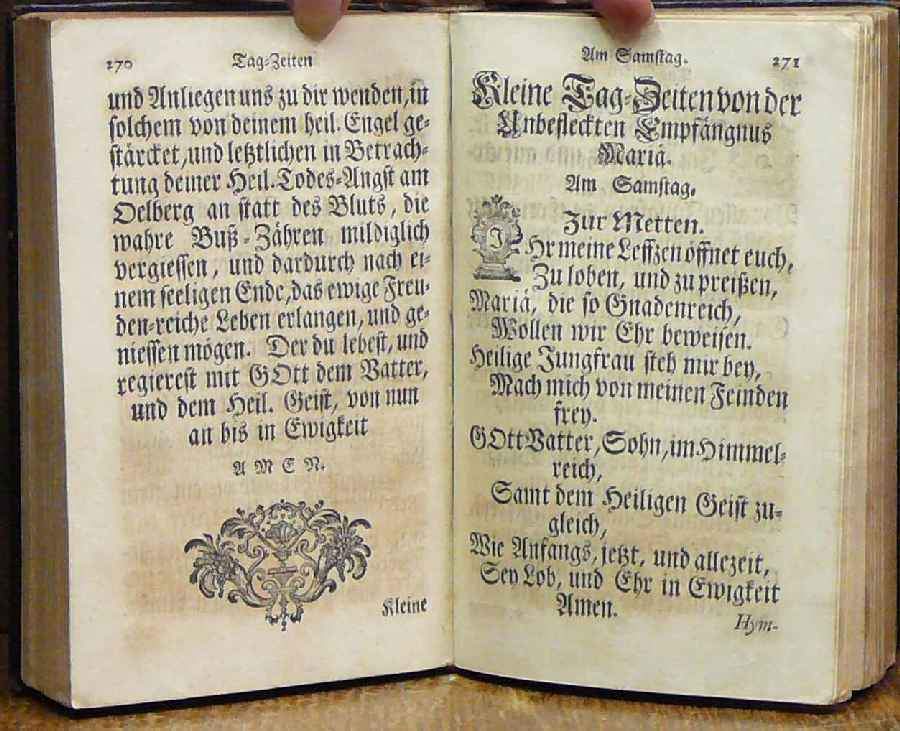 270 Tag-Zeiten
und Anliegen uns zu dir wenden, in
solchem von deinem heil. Engel ge-
stärcket, und letztlichen in Betrach-
tung deiner Heil. Todes-Angst am
Oelberg an statt des Bluts, die
wahre Buß-Zähren mildiglich
vergiessen, und dardurch nach ei-
nem seeligen Ende, das ewige Freu-
den-reiche Leben erlangen, und ge-
niessen mögen. Der du lebest, und
regierest mit GOtt dem Vatter,
und dem Heil. Geist, von nun
an bis in Ewigkeit
AMEN.
Kleine
Am Samstag. 271
Kleine Tag-Zeiten von der
Unbefleckten Empfängnus
Mariä.
Am Samstag.
Zur Metten.
IHr meine Leffzen öffnet euch,
Zu loben, und zu preißen,
Mariä, die so Gnadenreich,
Wollen wir Ehr beweisen.
Heilige Jungfrau steh mir bey,
Mach mich von meinen Feinden
frey.
GOtt Vatter, Sohn, im Himmel-
reich,
Samt dem Heiligen Geist zu-
gleich,
Wie Anfangs, jetzt, und allezeit,
Sey Lob, und Ehr in Ewigkeit
Amen.
Hym-